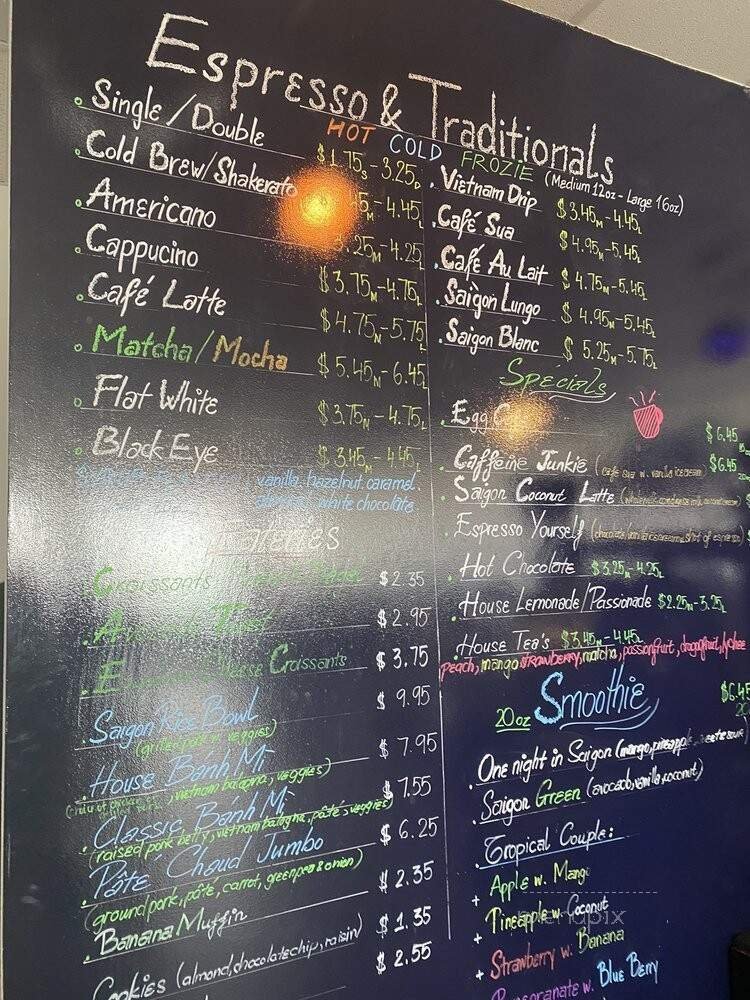 Espresso & Traditionals
HOT COLD FROZIE (Medium 12oz - Large 16oz)
Single/Double $1.75s - 3.25D
Cold Brew/Shakerato - 4.45L
Americano 3.25M - 4.25L
Cappucino $3.75M - 4.75L
Café Latte $4.75M - 5.75L
Matcha/Mocha $5.45M - 6.45L
Flat White $3.75M - 4.75L
Black Eye $3.45M - 4.45L
vanilla, hazelnut, caramel,
white chocolate
Vietnam Drip $3.45M - 4.45L
Café Sua $4.95M - 5.45L
Café Au Lait $4.75M - 5.45L
Saigon Lungo $4.95M - 5.45L
Saigon Blanc $5.25M - 5.75L
Specials
Egg $6.45
Caffeine Junkie (cafe sua w. vanilla icecream) $6.45
Saigon Coconut Latte
Espresso Yourself
Hot Chocolate $3.25M - 4.25L
House Lemonade/Passionade $2.25M - 3.25L
House Tea's $3.45M - 4.45L
Peach, mango, strawberry, matcha, passionfruit, dragonfruit, lychee
Croissants $2.35
$2.95
House Croissants $3.75
Saigon Rice Bowl $9.95
(grilled pork w. veggies)
House Bánh Mì $7.95
vietnam bologna, veggies)
Classic Bánh Mì $7.55
(raised pork belly, vietnam bologna, pâté, veggies)
Pâté Chaud Jumbo $6.25
(ground pork, pâte, carrot, greenpea & onion)
Banana Muffin $2.35
Cookies (almond, chocolatechip, raisin) $1.35
$2.55
20oz Smoothie $6.45
One night in Saigon (mango, pineapple,
Saigon Green (avocado, vanilla, coconut)
Tropical Couple:
+ Apple w. Mango
+ Pineapple w. Coconut
+ Strawberry w. Banana
Pomegranate w. Blue Berry
menupix